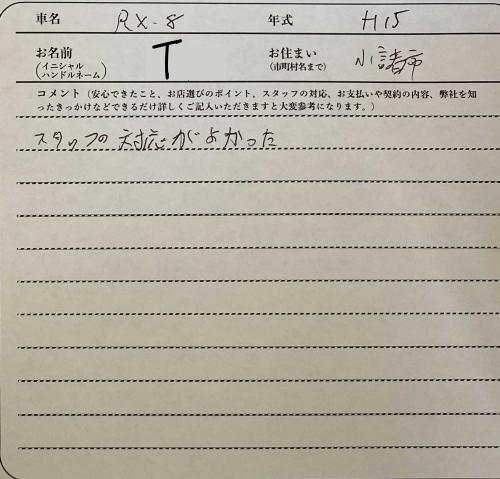 車名 RX-8 年式 H15
お名前 (イニシャル ハンドルネーム) T お住まい (市町村名まで) 小諸市
コメント（安心できたこと、お店選びのポイント、スタッフの対応、お支払いや契約の内容、弊社を知
ったきっかけなどできるだけ詳しくご記入いただきますと大変参考になります。）
スタッフの対応がよかった